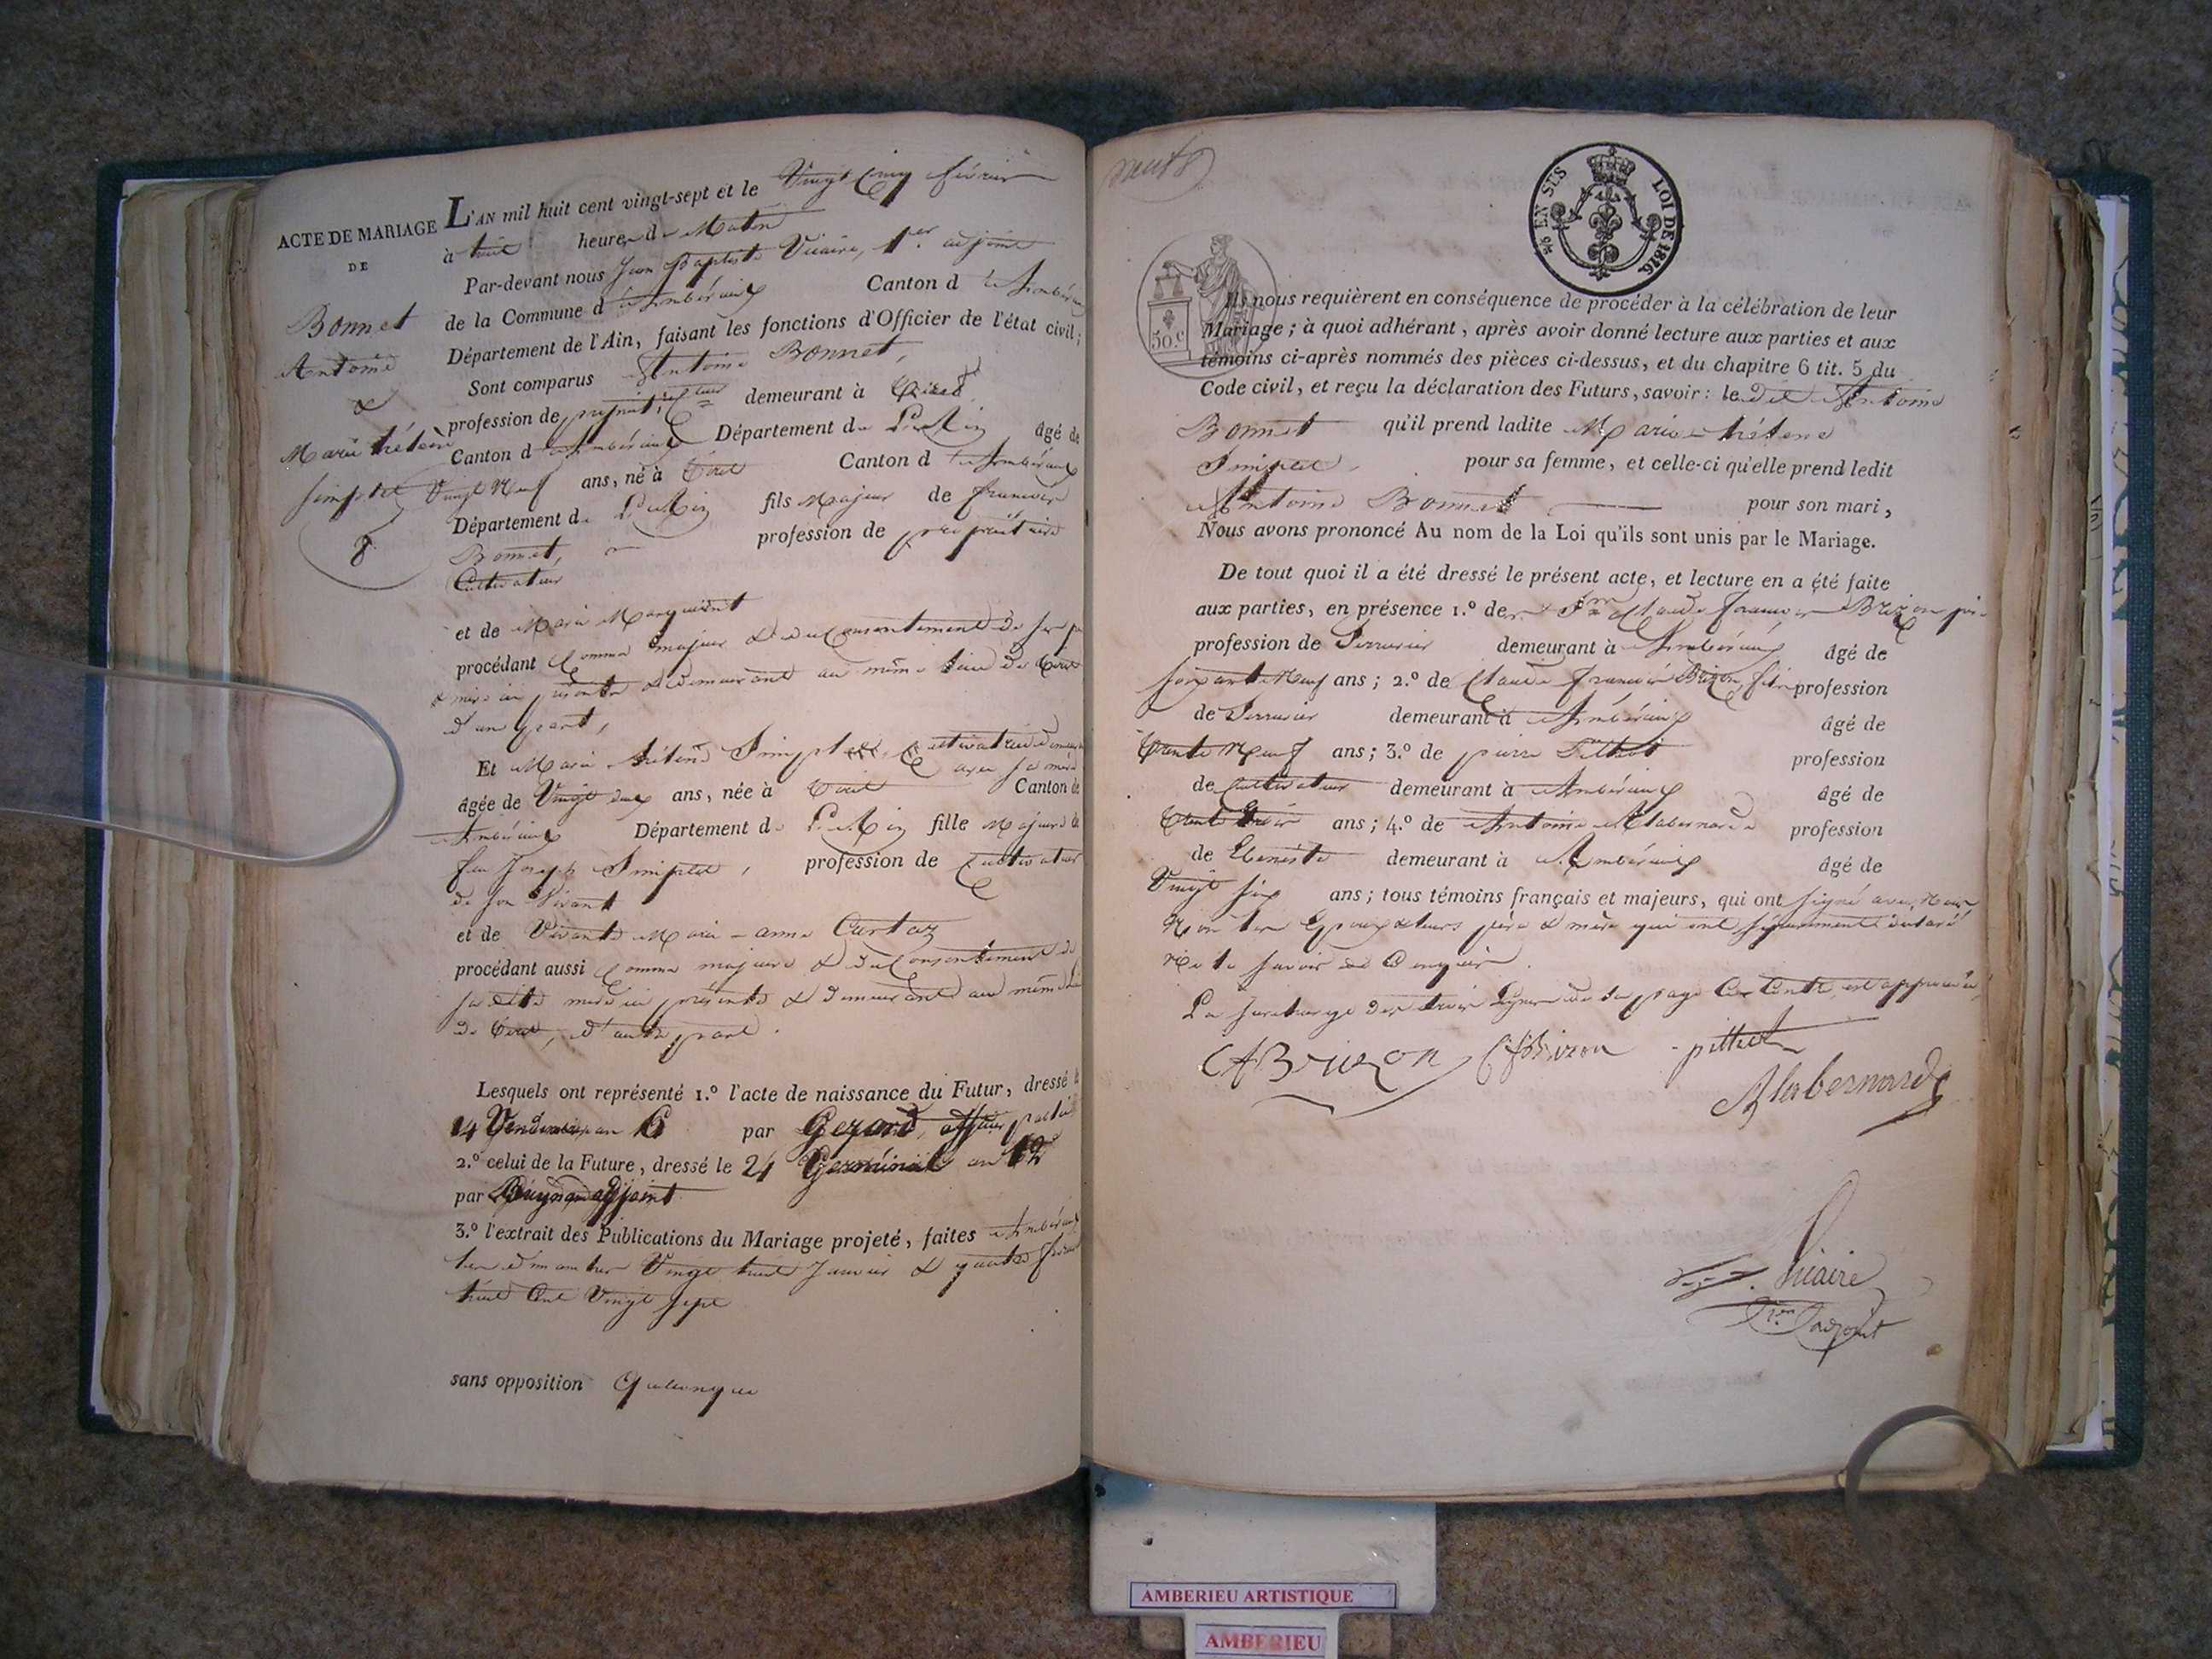 ACTE DE MARIAGE
DE
Bonnet
Antoine
&
Marie hélène
Simplet
8
L'AN mil huit cent vingt-sept et le Vingt Cinq février
à huit heures du Matin
Par-devant nous Jean Baptiste Vicaire, 1er adjoint
de la Commune d'Ambérieux Canton d'Ambérieux
Département de l'Ain, faisant les fonctions d'Officier de l'état civil;
Sont comparus Antoine Bonnet,
profession de demeurant à
Canton d'Ambérieux Département de L'Ain âgé de
Vingt Neuf ans, né à Canton d'Ambérieux
Département de L'Ain fils Majeur de françois
Bonnet, profession de propriétaire
Cultivateur
et de Marie
procédant Comme majeur & du Consentement de ses père
& mère ici présents & demeurant au même lieu de
d'une part,
Et Marie hélène Simplet, Cultivatrice demeurant
avec sa mère
âgée de Vingt deux ans, née à Canton de
Ambérieux Département de L'Ain fille Majeure de
feu Joseph Simplet, profession de Cultivateur
de son Vivant
et de Vivante Marie-anne Curtaz
procédant aussi Comme majeure & du Consentement de
sa dite mère ici présente & demeurante au même lieu
de d'autre part.
Lesquels ont représenté 1.º l'acte de naissance du Futur, dressé le
14 Vendémiaire an 6 par officier public
2.º celui de la Future, dressé le 24 Germinal an 12
par adjoint
3.º l'extrait des Publications du Mariage projeté, faites Ambérieux
les dimanches Vingt huit Janvier & quatre février
huit Cent Vingt sept
sans opposition Quelconque
EN SUS
LOI DE 1816.
50.c
Ils nous requièrent en conséquence de procéder à la célébration de leur
Mariage; à quoi adhérant, après avoir donné lecture aux parties et aux
témoins ci-après nommés des pièces ci-dessus, et du chapitre 6 tit. 5 du
Code civil, et reçu la déclaration des Futurs, savoir: le dit Antoine
Bonnet qu'il prend ladite Marie-hélène
Simplet, pour sa femme, et celle-ci qu'elle prend ledit
Antoine Bonnet pour son mari,
Nous avons prononcé Au nom de la Loi qu'ils sont unis par le Mariage.
De tout quoi il a été dressé le présent acte, et lecture en a été faite
aux parties, en présence 1.º de Claude françois Brizon père
profession de Serrurier demeurant à Ambérieux âgé de
soixante Neuf ans; 2.º de Claude françois Brizon, fils profession
de Serrurier demeurant à Ambérieux âgé de
trente Neuf ans; 3.º de pierre profession
de Cultivateur demeurant à Ambérieux âgé de
trente trois ans; 4.º de Antoine Alabernarde profession
de Ebeniste demeurant à Ambérieux âgé de
Vingt six ans; tous témoins français et majeurs, qui ont signé avec nous
Non les Epoux & leurs père & mère qui ont séparemment déclaré
Ne le savoir de Ce requis.
La surcharge des trois Lignes de la page Ci Contre, est approuvée,
Brizon Brizon
Alabernarde
Vicaire
1er adjoint
AMBERIEU ARTISTIQUE
AMBERIEU